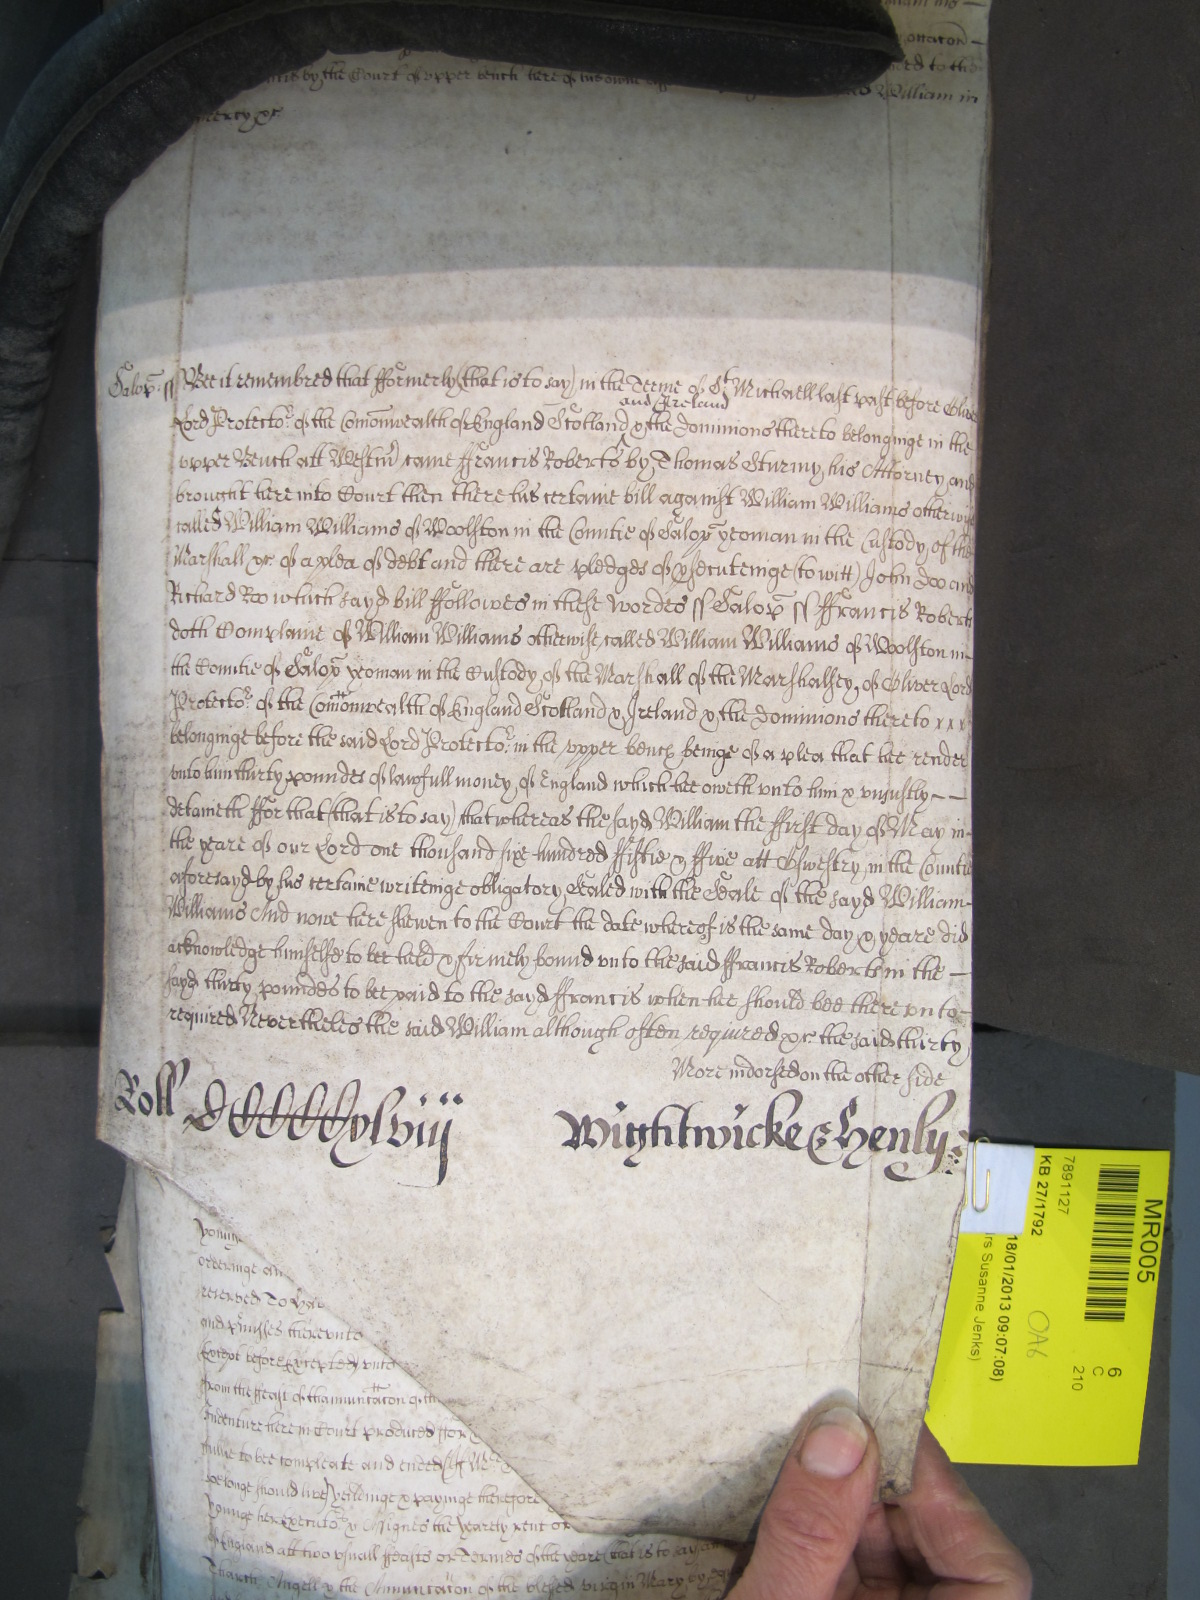 by the Court of upper bench here
William in
Salop ss Bee it remembred that fformerly (that is to say) in the Terme of St Michaell last past before Oliver
and Ireland
Lord Protector of the Comonwealth of England Scotland & the Dominions thereto belonginge in the
upper Bench att Westm came ffrancis Roberts by Thomas Sturmy his Attorney and
brought here into Court then there his certaine bill against William Williams otherwise
called William Williams of Woolston in the Countie of Salop yeoman in the Custody of the
Marshall &c of a plea of debt and there are pledges of psecuteinge (to witt) John Doo and
Richard Roo which sayd bill ffollowes in these wordes ss Salop ss ffrancis Roberts
doth Complaine of William Williams otherwise called William Williams of Woolston in
the Countie of Salop yeoman in the Custody of the Marshall of the Marshalsey of Oliver Lord
Protector of the Comonwealth of England Scotland & Ireland & the Dominions thereto x x x
belonginge before the said Lord Protector in the upper bench beinge of a plea that hee render
unto him thirty poundes of lawfull money of England which hee oweth unto him & uniustly
detaineth ffor that (that is to say) that whereas the sayd William the ffirst day of May in
the yeare of our Lord one thousand sixe hundred ffiftie & ffive att Oswestry in the Countie
aforesayd by his certaine writeinge obligatory Sealed with the Seale of the sayd William
Williams And nowe here shewen to the Court the date whereof is the same day & yeare did
acknowledge himselfe to bee held & firmely bound unto the said ffrancis Roberts in the
sayd thirty poundes to bee paid to the sayd ffrancis when hee should bee there unto
required Neverthelesse the said William although often required &c the said thirty
More indorsed on the other side
Roll DCCCCCxlviij Wightwicke & Henly
younge
orderinge an
reserved To
and pmisses thereunto
Except before excepted) unto
from the ffeast of thannuntacon of the
Indenture here in Court produced ffor
to bee compleate and ended (if
soe longe should live) yeildinge & payinge therefore
Younge her executors & Assignes the yearely rent of
of England att two usuall ffeasts or Termes of the yeare (that is to say)
Tharch Angell & the Annuntacon of the blessed virgin Mary by
MR005
7891127
KB 27/1792
18/01/2013 09:07:08)
rs Susanne Jenks)
OA6
6
C
210